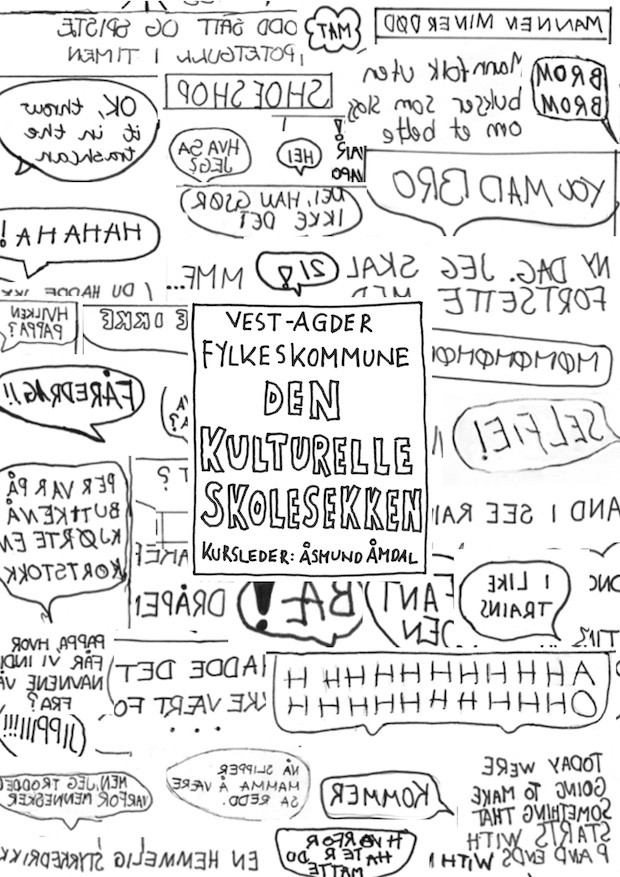 ODD SATT OG SPISTE
POTETGULL I TIMEN
MAT
MANNEN MINER DØD
OK, throw
it in the
trashcan
SHOESHOP
Mannfolk uten
bukser som slåss
om et belte
BROM
BROM
HVA SA
JEG?
HEI
YOU MAD BRO
NEI, HAN GJØR
IKKE DET
HAHAHA!
( DU HADDE IKK
MMF...
SKAL
NY DAG. JEG
FORTSETTE
MED
HVILKEN
PAPPA?
E IKKE
VEST-AGDER
FYLKESKOMMUNE
DEN
KULTURELLE
SKOLESEKKEN
KURSLEDER: ÅSMUND ÅMDAL
MØMØMØMØ
FÅREDRAG!!
SELFIE!
PER VAR PÅ
BUTIKKEN Å
KJØRTE EN
KORTSTOKK
T ?
AND I SEE RAI
DRÅPEN
BÆ!
FANT
DEN
I LIKE
TRAINS
PAPPA, HVOR
FÅR VI
NAVNENE VÅ
FRA?
HADDE DET
KKE VÆRT FO
...
AHHHHHHHHH
OHHHHHHHHH
(JIPPIIIII!!!!)
MEN, JEG TRODDE
VARFOR MENNESKER
NÅ SLIPPER
MAMMA Å VÆRE
SÅ REDD.
KOMMER
TODAY WERE
GOING TO MAKE
SOMETHING THAT
STARTS WITH
P AND ENDS WITH
EN HEMMELIG STYRKEDRIKK
HVORFOR
HATER DU
MATTE